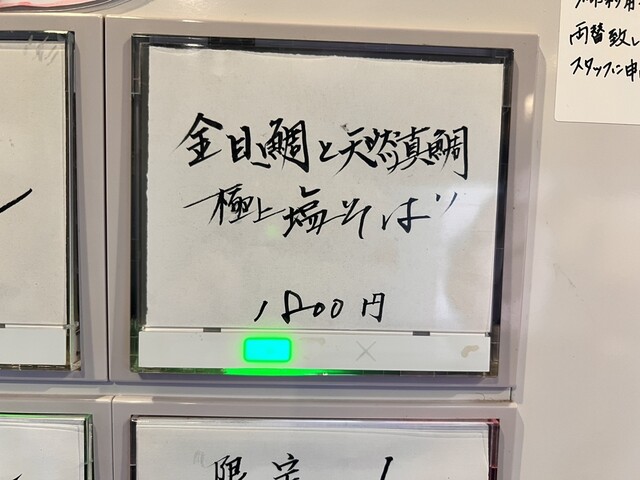 両替致し
スタッフに申
金目鯛と天然真鯛
極上塩そば
1800円
限定